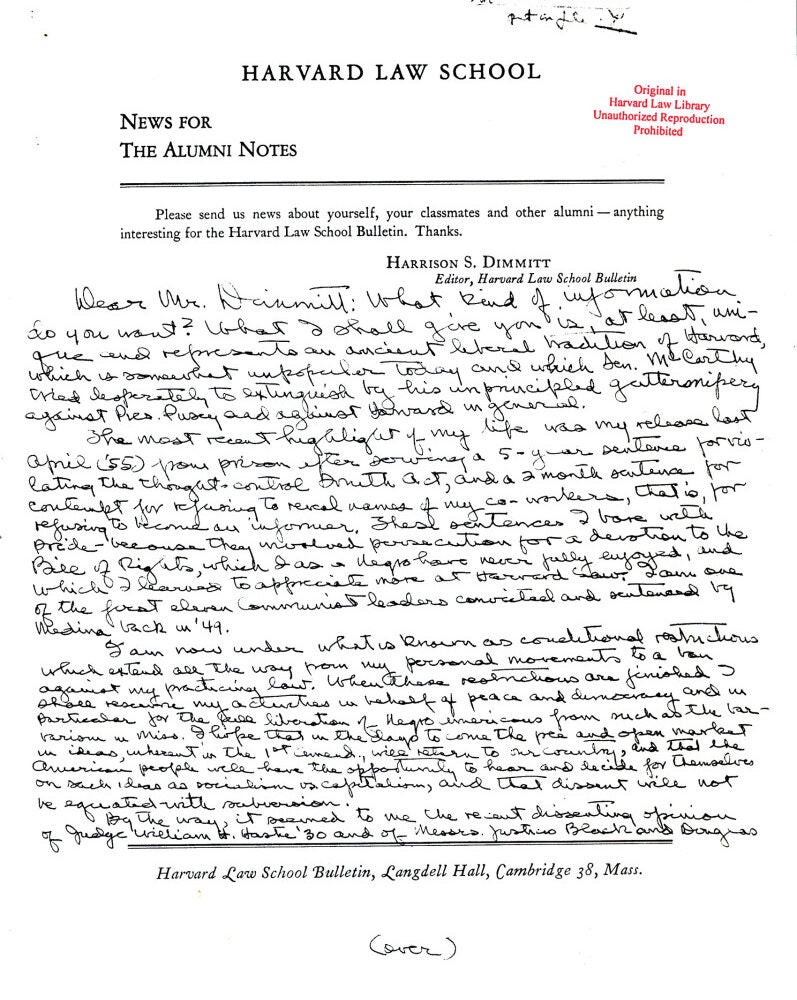 put in file
HARVARD LAW SCHOOL
Original in
Harvard Law Library
Unauthorized Reproduction
Prohibited
NEWS FOR
THE ALUMNI NOTES
Please send us news about yourself, your classmates and other alumni — anything
interesting for the Harvard Law School Bulletin. Thanks.
HARRISON S. DIMMITT
Editor, Harvard Law School Bulletin
Dear Mr. Dimmitt: What kind of information
do you want? What I shall give you is, at least, uni-
que and represents an ancient liberal tradition of Harvard,
which is somewhat unpopular today and which Sen. McCarthy
tried desperately to extinguish by his unprincipled guttersnipery
against Pres. Pusey and against Harvard in general.
The most recent highlight of my life was my release last
April ('55) from prison after serving a 5-year sentence for vio-
lating the thought-control Smith Act, and a 2 month sentence for
contempt for refusing to reveal names of my co-workers, that is, for
refusing to become an informer. These sentences I bore with
pride - because they involved persecution for a devotion to the
Bill of Rights, which I as a Negro have never fully enjoyed, and
which I learned to appreciate more at Harvard Law. I am one
of the first eleven Communist leaders convicted and sentenced by
Medina back in '49.
I am now under what is known as conditional restrictions
which extend all the way from my personal movements to a ban
against my practicing law. When these restrictions are finished I
shall resume my activities in behalf of peace and democracy and in
particular for the full liberation of Negro Americans from such as the bar-
barism in Miss. I hope that in the days to come the free and open market
in ideas, inherent in the 1st amend., will return to our country, and that the
American people will have the opportunity to hear and decide for themselves
on such ideas as socialism vs. capitalism, and that dissent will not
be equated with subversion.
By the way, it seemed to me the recent dissenting opinion
of Judge William H. Hastie '30 and of Messrs. Justices Black and Douglas
Harvard Law School Bulletin, Langdell Hall, Cambridge 38, Mass.
(over)